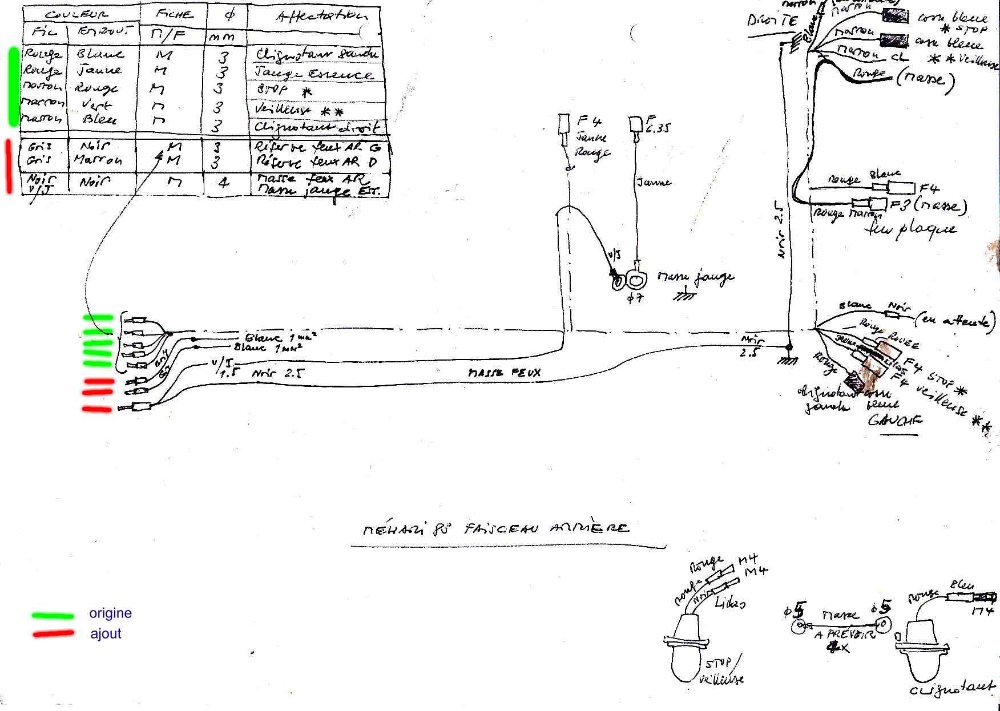 COULEUR FICHE φ Affectation
FIL EMBOUT M/F mm
Rouge Blanc M 3 Clignotant Gauche
Rouge Jaune M 3 Jauge Essence
Marron Rouge M 3 STOP *
Marron Vert M 3 Veilleuse **
Marron Bleu M 3 Clignotant droit
Gris Noir M 3 Réserve feux AR G
Gris Marron M 3 Réserve feux AR D
Noir Noir M 4 Masse feux AR
V/J Masse jauge Ess.
DROITE
Blanc
Marron
Marron
Marron
corn bleue
* STOP
corn bleue
** Veilleuse
Rouge (Masse)
F4
Jaune
Rouge
F
6.35
Jaune
V/J
φ7
Masse jauge
Noir 2.5
Rouge Blanc F4
Rouge Marron F3 (Masse)
feu plaque
Blanc 1 mm²
Blanc 1 mm²
V/J
1.5 Noir 2.5
MASSE FEUX
Noir
2.5
Blanc Noir (en attente)
Rouge
Rouge
F4 STOP *
F4 Veilleuse **
clignotant
gauche
GAUCHE
MÉHARI 85 FAISCEAU ARRIÈRE
origine
ajout
Rouge M4
Rouge M4
Lilas
STOP/
Veilleuse
φ5 Masse φ5
A PREVOIR
Rouge Bleu
M4
Clignotant